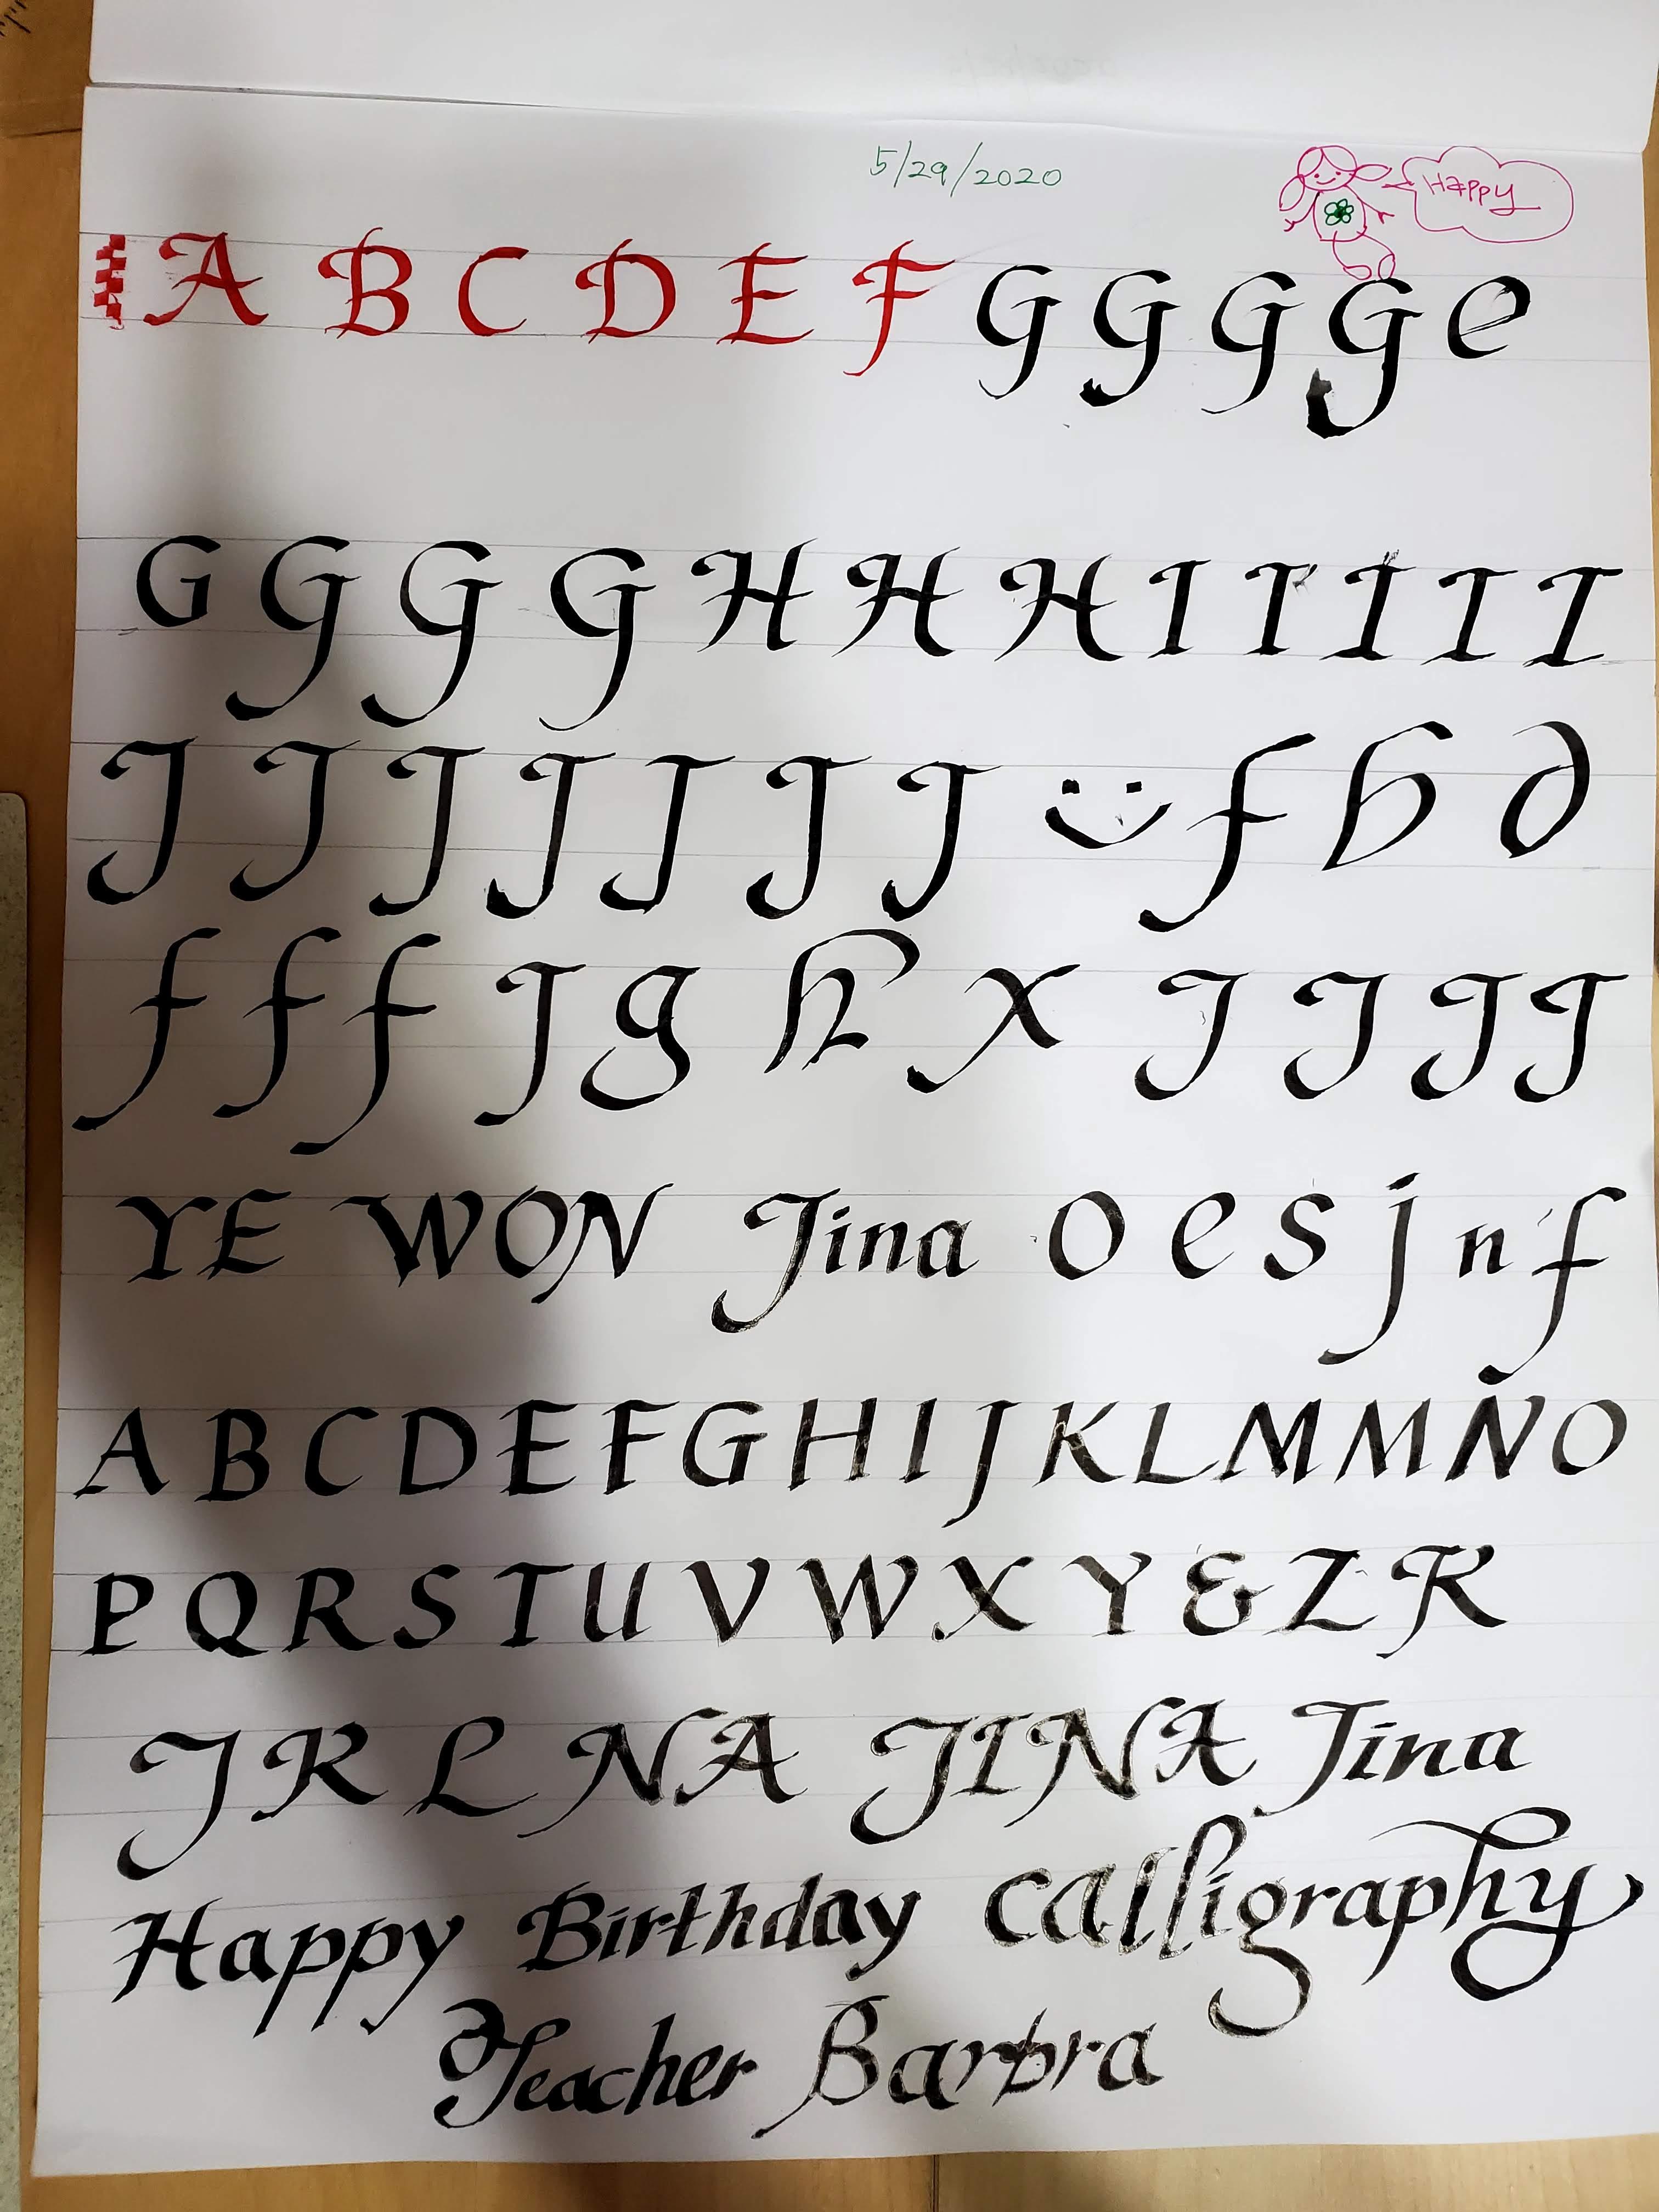 5/29/2020
Happy
A B C D E F G G G G e
G G G G H H H I I I I I
J J J J J J J f h d
f f f J g h x J J J J
YE WON Jina o e s j n f
A B C D E F G H I J K L M M Ñ O
P Q R S T U V W X Y & Z K
J K L N A JINA Jina
Happy Birthday Calligraphy
Teacher Barbra